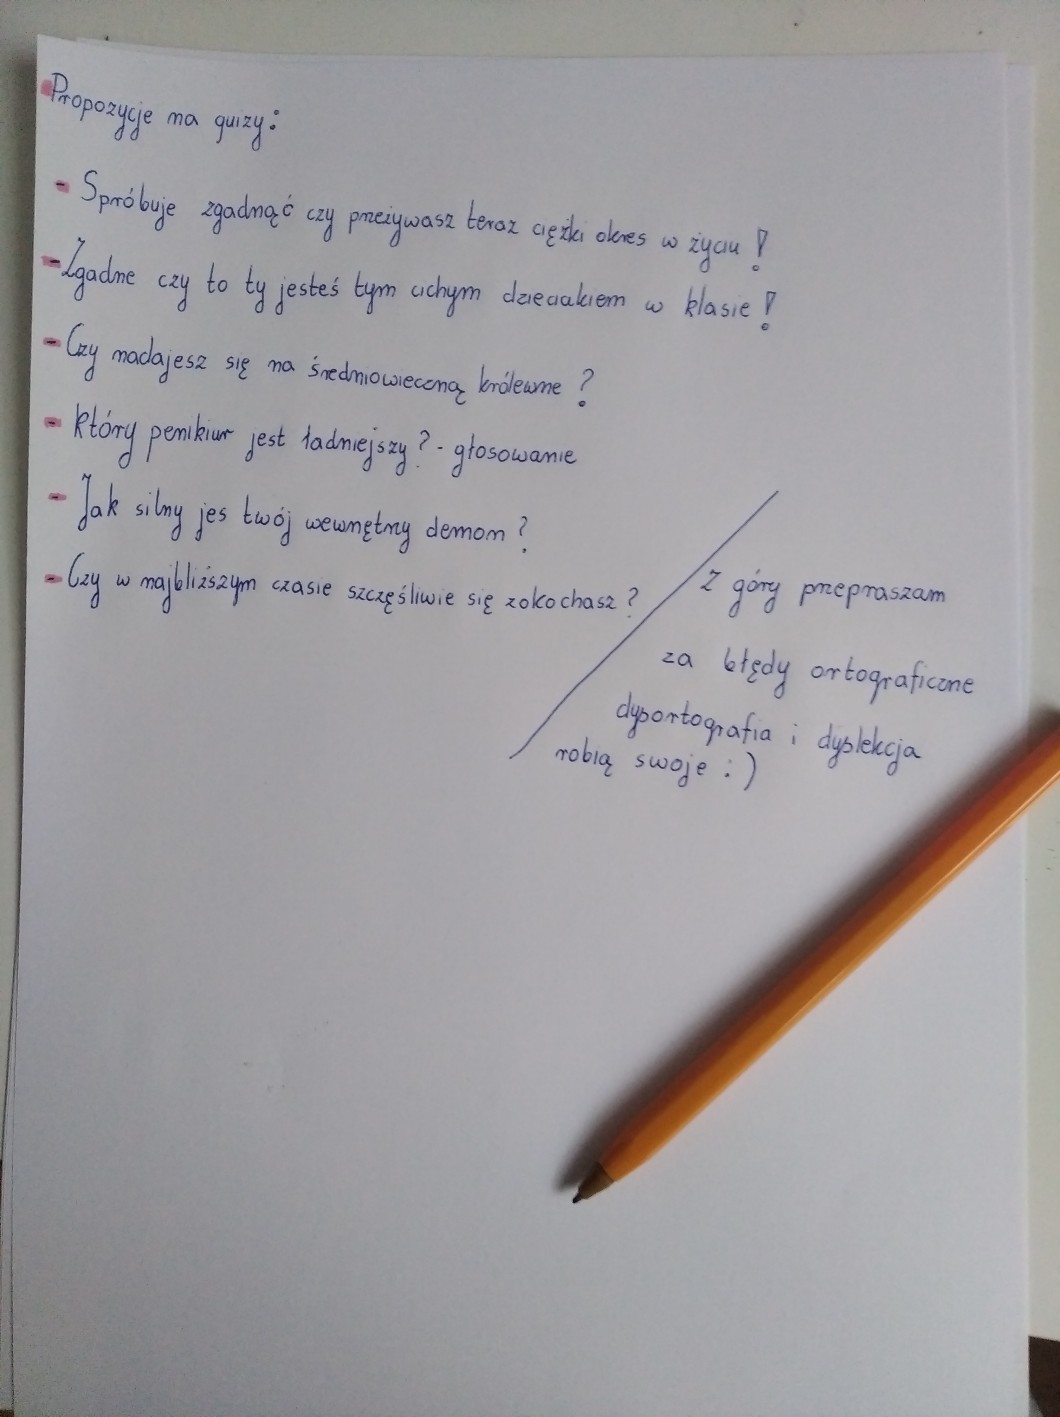 Propozycje na quizy:
- Spróbuje zgadnąć czy przeżywasz teraz ciężki okres w życiu!
- Zgadne czy to ty jesteś tym cichym dzieciakiem w klasie!
- Czy nadajesz się na średniowieczną królewne?
- Który penikiur jest ładniejszy? - głosowanie
- Jak silny jes twój wewnętrny demon?
- Czy w najbliższym czasie szczęśliwie się zokochasz?
Z góry przepraszam
za błędy ortograficzne
dysortografia i dyslekcja
robią swoje :)